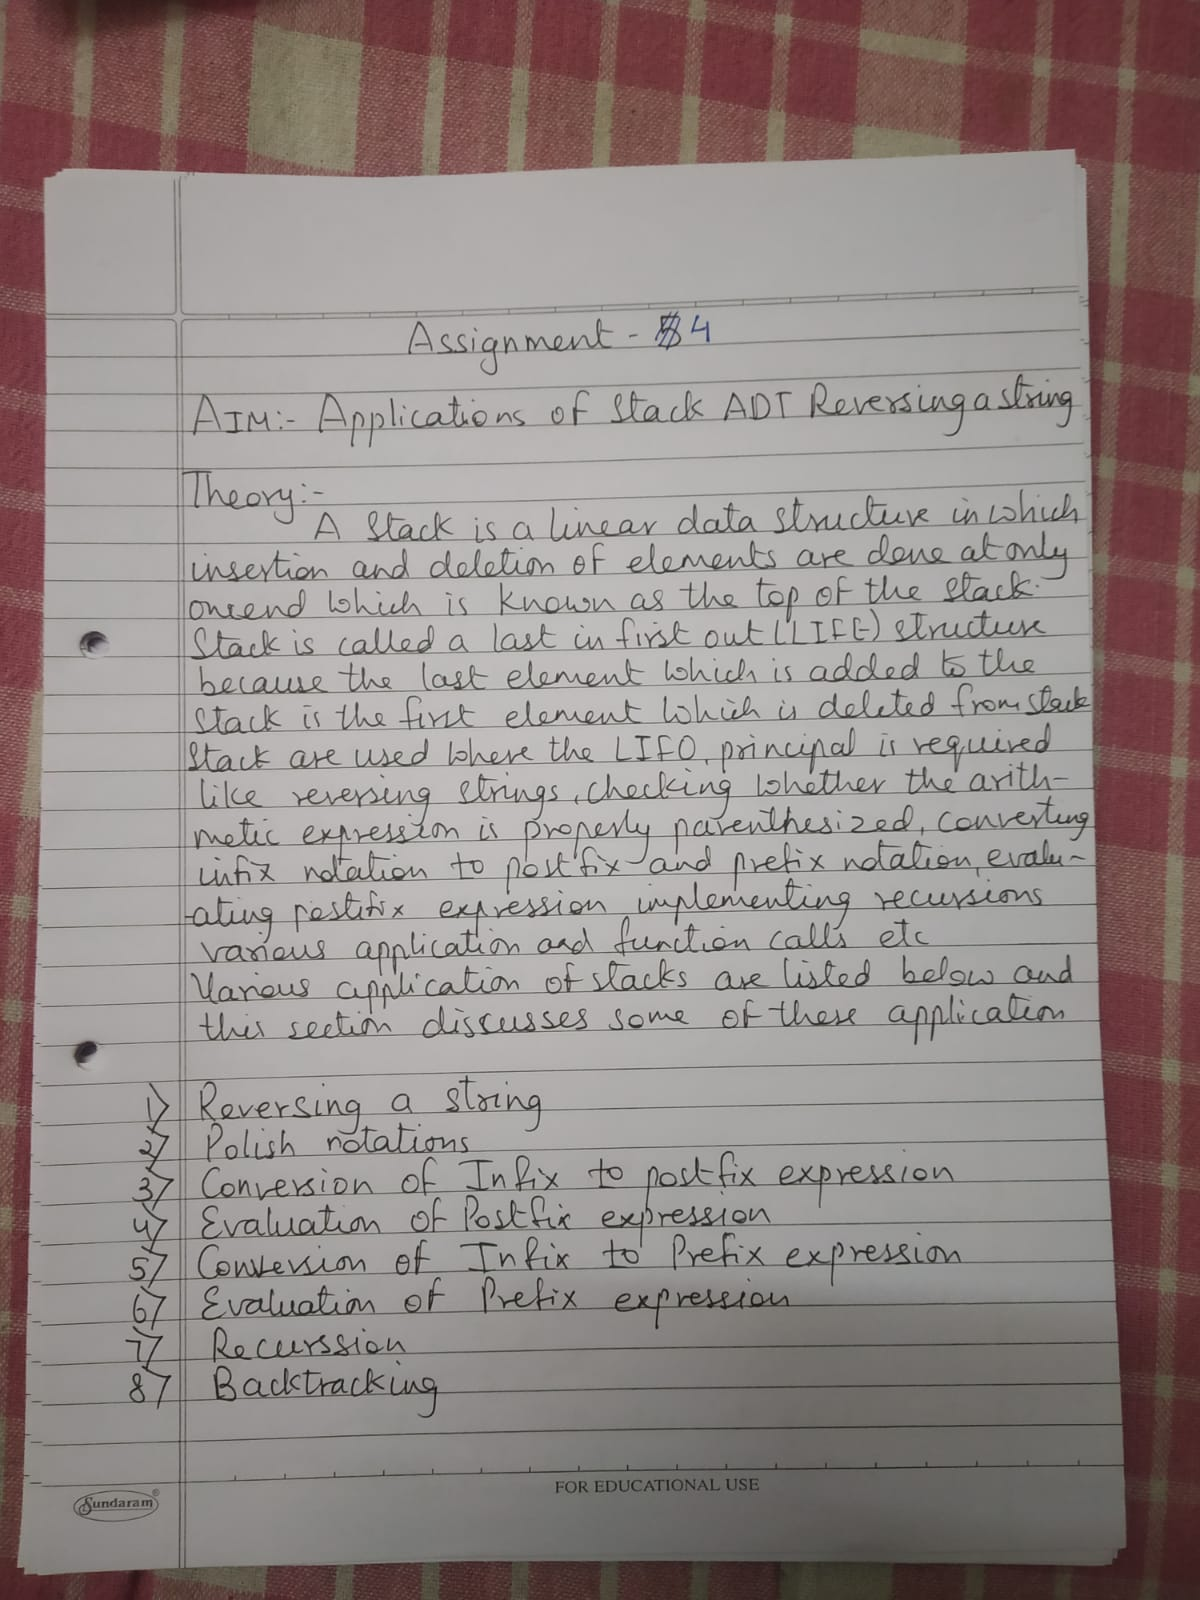 Assignment - 4
AIM:- Applications of Stack ADT Reversing a string
Theory:-
A Stack is a linear data structure in which
insertion and deletion of elements are done at only
one end which is known as the top of the stack.
Stack is called a last in first out (LIFE) structure
because the last element which is added to the
stack is the first element which is deleted from stack
Stack are used where the LIFO, principal is required
like reversing strings, checking whether the arith-
metic expression is properly parenthesized, converting
infix notation to postfix and prefix notation, evalu-
ating postifix expression, implementing recursions
various application and function calls etc
Various application of stacks are listed below and
this section discusses some of these application
1) Reversing a string
2) Polish notations
3) Conversion of Infix to postfix expression
4) Evaluation of Postfix expression
5) Conversion of Infix to Prefix expression
6) Evaluation of Prefix expression
7) Recurssion
8) Backtracking
FOR EDUCATIONAL USE
Sundaram®